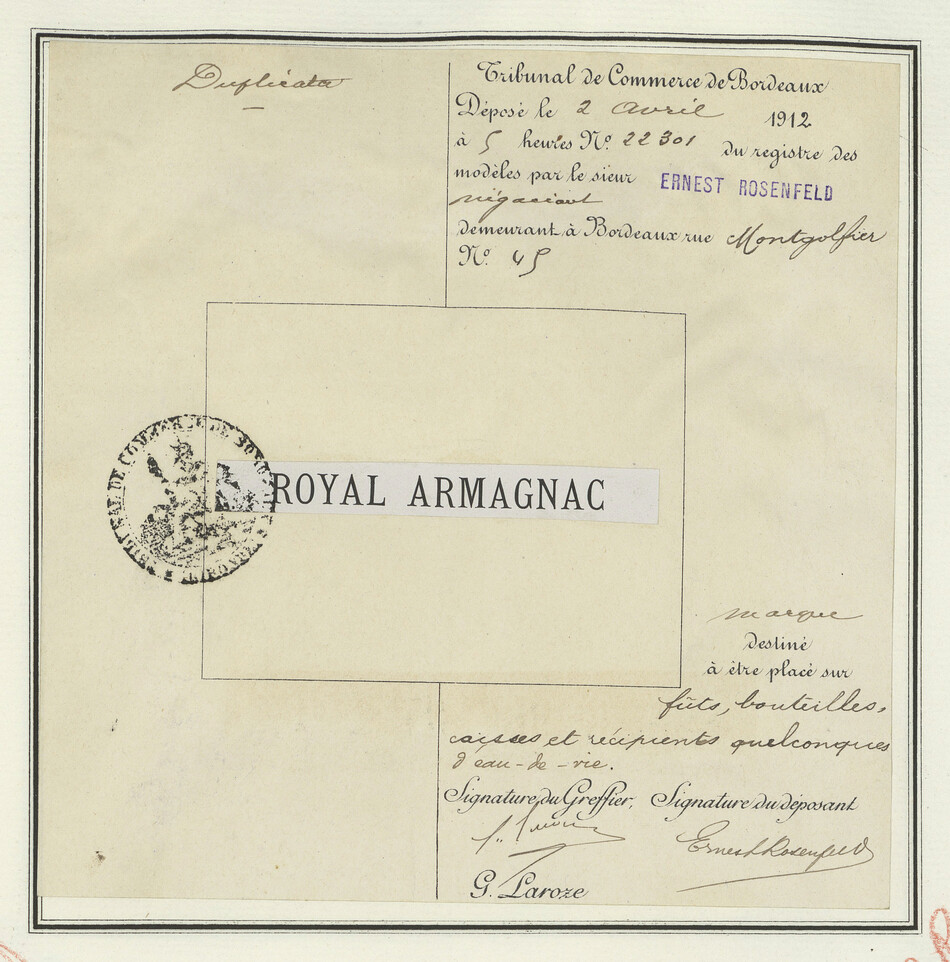 Duplicata
Tribunal de Commerce de Bordeaux
Déposé le 2 Avril 1912
à 5 heures No. 22301 du registre des
modèles par le sieur ERNEST ROSENFELD
négociant
demeurant à Bordeaux rue Montgolfier
No. 45
TRIBUNAL DE COMMERCE DE BORDEAUX
ROYAL ARMAGNAC
marque
destiné
à être placé sur
fûts, bouteilles,
caisses et récipients quelconques
d'eau-de-vie.
Signature du Greffier, Signature du déposant
Ernest Rosenfeld
G. Laroze